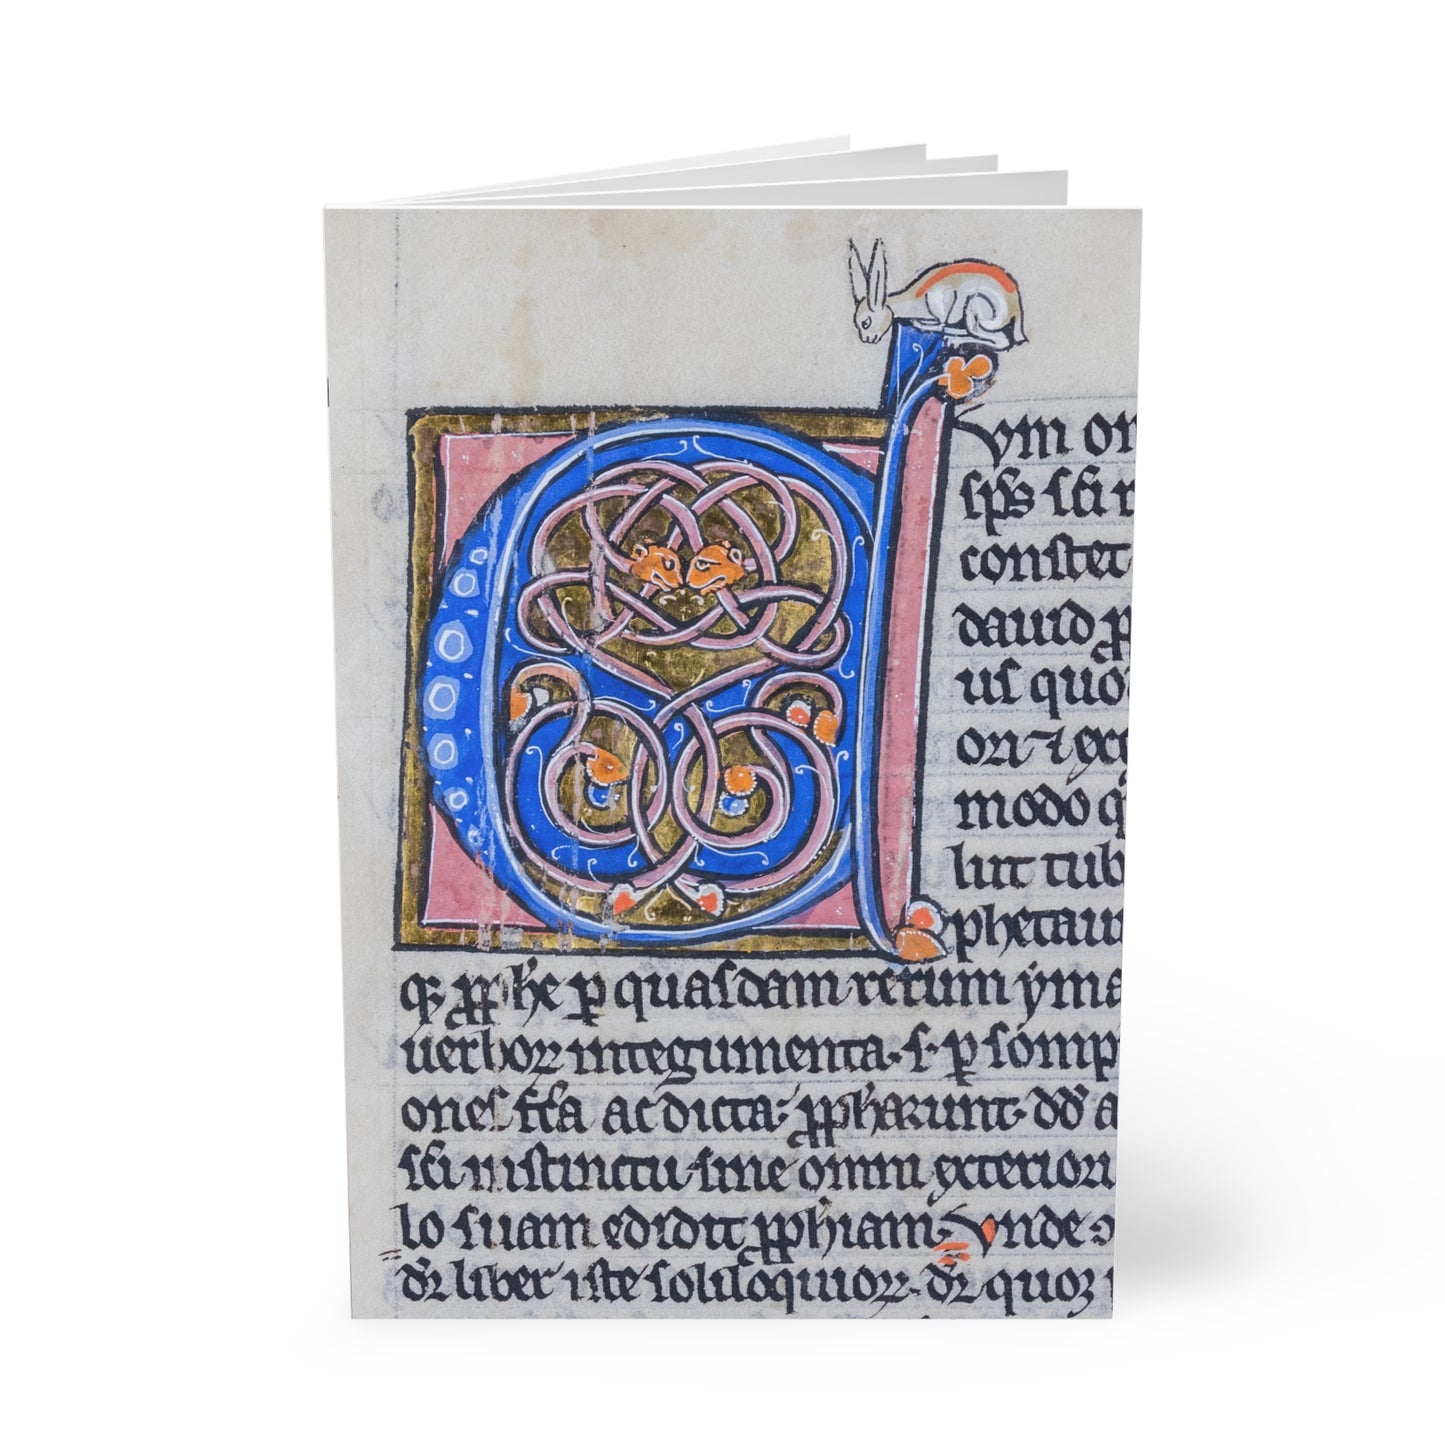 Cvm om
sp̄s sc̄i r
constet
dauid p
us quo
ori ⁊ exce
modo q
lut tub
phetaui
q̄ꝫ ꝓph̄e ꝑ quasdam rerum ymа
uerboꝝ integumenta. s. ꝑ somp
ones fc̄a ac dicta ꝓphaꝝunt. dd̄ a
sc̄i instinctu sine omni exteriori
lo suam edidit ꝓphiam. Vnde ↄ
dr̄ liber iste soliloquioꝝ. dr̄ quoꝫ